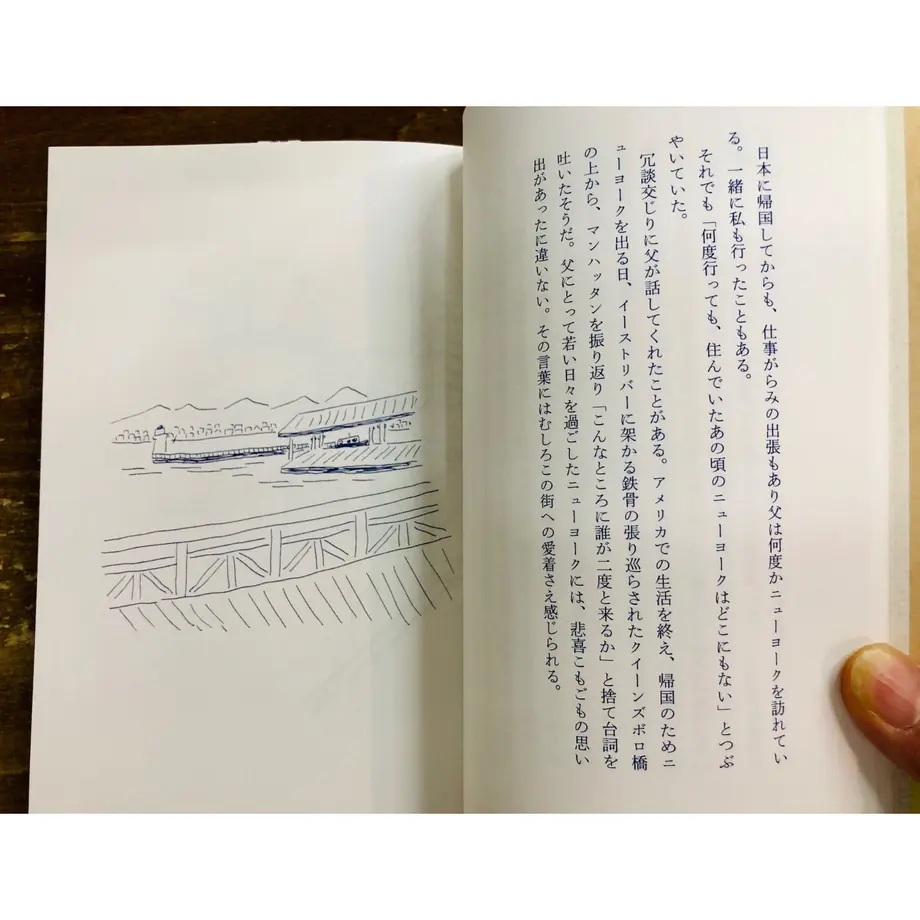 日本に帰国してからも、仕事がらみの出張もあり父は何度かニューヨークを訪れてい
る。一緒に私も行ったこともある。
それでも「何度行っても、住んでいたあの頃のニューヨークはどこにもない」とつぶ
やいていた。
冗談交じりに父が話してくれたことがある。アメリカでの生活を終え、帰国のためニ
ューヨークを出る日、イーストリバーに架かる鉄骨の張り巡らされたクイーンズボロ橋
の上から、マンハッタンを振り返り「こんなところに誰が二度と来るか」と捨て台詞を
吐いたそうだ。父にとって若い日々を過ごしたニューヨークには、悲喜こもごもの思い
出があったに違いない。その言葉にはむしろこの街への愛着さえ感じられる。